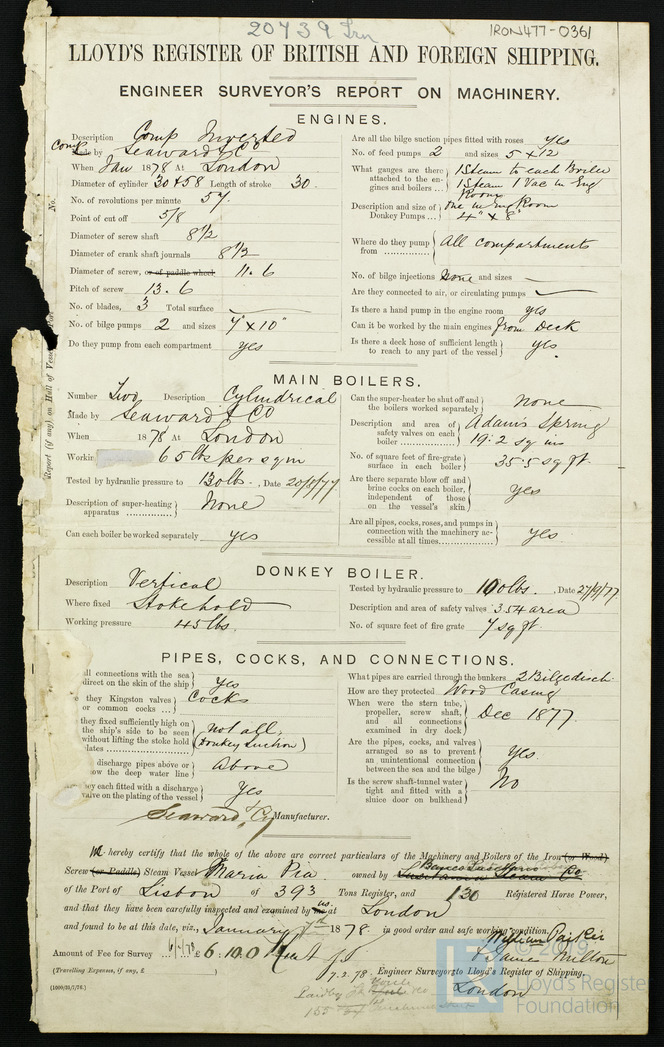 20439 Irn
IRON477-0361
LLOYD'S REGISTER OF BRITISH AND FOREIGN SHIPPING.
ENGINEER SURVEYOR'S REPORT ON MACHINERY.
ENGINES.
Description Comp Inverted
by Seaward & Co
When Jan 1878 At London
Diameter of cylinder 30 & 58 Length of stroke 30.
No. of revolutions per minute 57
Point of cut off 5/8
Diameter of screw shaft 8 1/2
Diameter of crank shaft journals 8 1/2
Diameter of screw, or of paddle wheel 11.6
Pitch of screw 13.6
No. of blades, 3 Total surface
No. of bilge pumps 2 and sizes 4" x 10"
Do they pump from each compartment yes
Are all the bilge suction pipes fitted with roses yes
No. of feed pumps 2 and sizes 5 x 12
What gauges are there attached to the engines and boilers ... 1 Steam to each Boiler
1 Steam 1 Vac in Eng Room
Description and size of Donkey Pumps ... One in Eng Room
4" x 8"
Where do they pump from All compartments
No. of bilge injections None and sizes —
Are they connected to air, or circulating pumps
Is there a hand pump in the engine room yes
Can it be worked by the main engines from Deck
Is there a deck hose of sufficient length to reach to any part of the vessel yes.
Report (if any) on Hull of Vessel
No.
MAIN BOILERS.
Number Two Description Cylindrical
Made by Seaward & Co
When 1878 At London
Workin 65 lbs per sq in
Tested by hydraulic pressure to 130 lbs. , Date 20/8/77
Description of super-heating apparatus None
Can each boiler be worked separately yes
Can the super-heater be shut off and the boilers worked separately none
Description and area of safety valves on each boiler Adams Spring
19.2 sq ins
No. of square feet of fire-grate surface in each boiler 35.5 sq ft.
Are there separate blow off and brine cocks on each boiler, independent of those on the vessel's skin yes
Are all pipes, cocks, roses, and pumps in connection with the machinery accessible at all times yes.
DONKEY BOILER.
Description Vertical
Where fixed Stokehold
Working pressure 45 lbs.
Tested by hydraulic pressure to 100 lbs. , Date 27/9/77
Description and area of safety valves 3.54 area
No. of square feet of fire grate 7 sq ft.
PIPES, COCKS, AND CONNECTIONS.
ll connections with the sea direct on the skin of the ship yes
they Kingston valves or common cocks ... Cocks
they fixed sufficiently high on the ship's side to be seen without lifting the stoke hold lates not all,
(Donkey Suction)
discharge pipes above or ow the deep water line Above
ey each fitted with a discharge valve on the plating of the vessel Yes
What pipes are carried through the bunkers 2 Bilge disch.
How are they protected Wood Casing
When were the stern tube, propeller, screw shaft, and all connections examined in dry dock Dec 1877.
Are the pipes, cocks, and valves arranged so as to prevent an unintentional connection between the sea and the bilge Yes.
Is the screw shaft-tunnel water tight and fitted with a sluice door on bulkhead No
Seaward & Co Manufacturer.
hereby certify that the whole of the above are correct particulars of the Machinery and Boilers of the Iron (or Wood)
Screw (or Paddle) Steam Vessel Maria Pia. owned by
of the Port of Lisbon of 393 Tons Register, and 130 Registered Horse Power,
and that they have been carefully inspected and examined by us at London
and found to be at this date, viz., January 7th 1878. in good order and safe working condition.
William Parker
& James Milton
Amount of Fee for Survey £ 6:10.0
(Travelling Expenses, if any, £ )
7.2.78.
Engineer Surveyors to Lloyd's Register of Shipping,
London
© 2019
Lloyd's Register Foundation